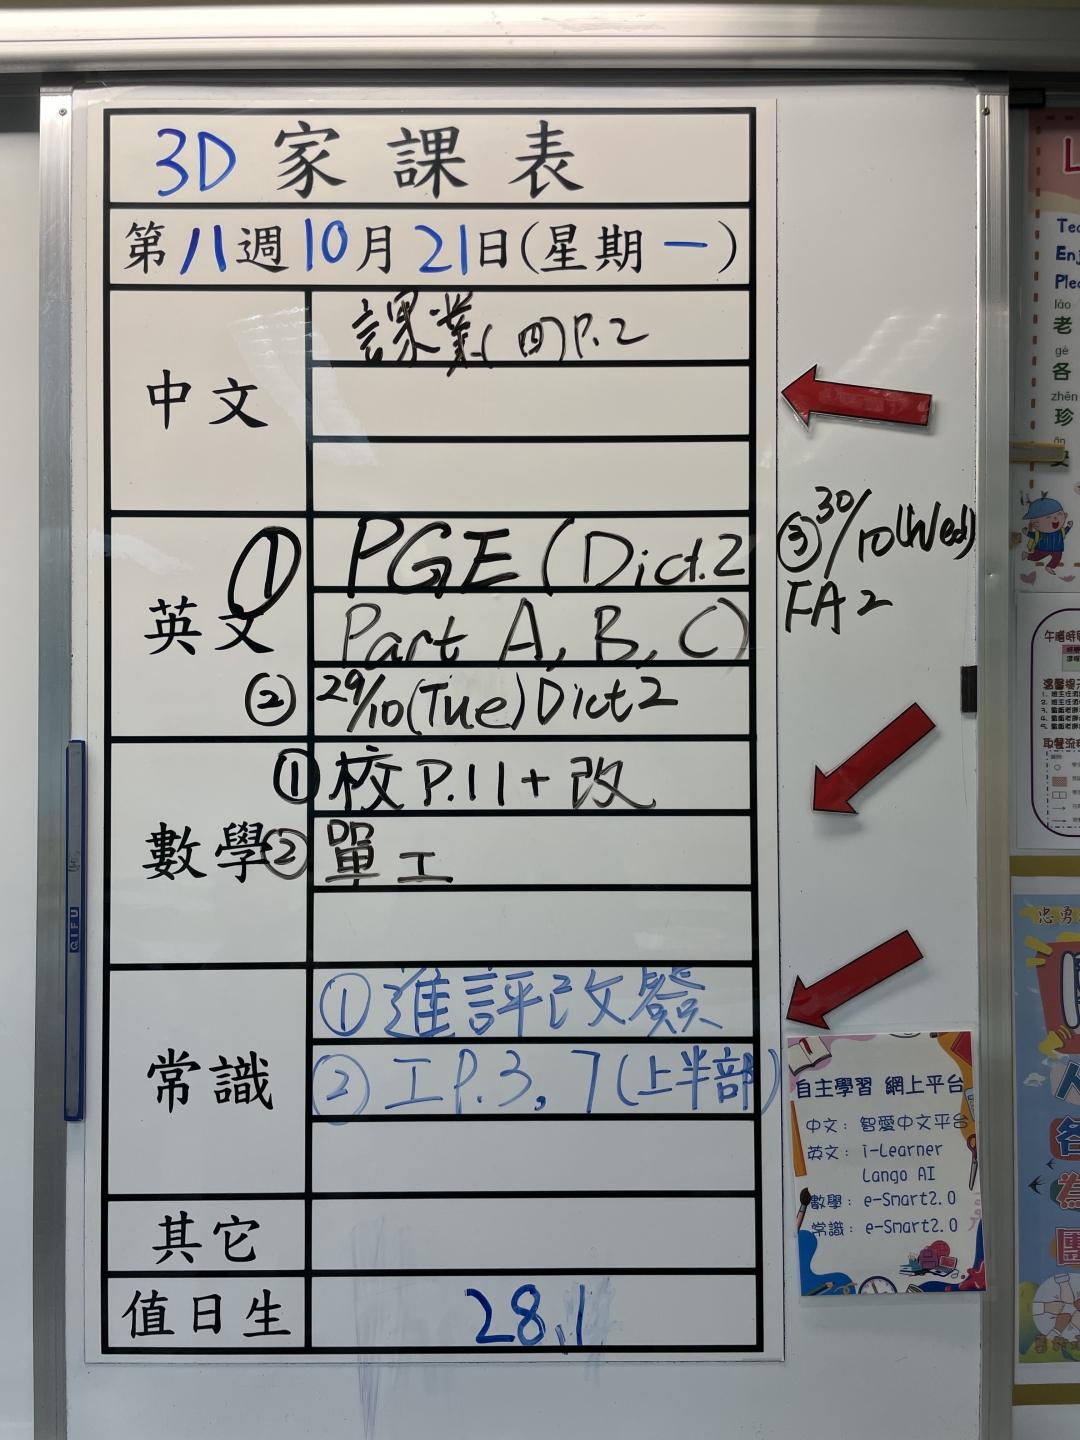 3D 家課表
第八週10月21日(星期一)
中文
課業(四)P.2
英文
① PGE (Dict.2
Part A, B, C)
② 29/10(Tue) Dict 2
③ 30/10(Wed)
FA 2
數學
① 校 P.11 + 改
② 單工
常識
① 進評改簽
② 工 P.3, 7(上半部)
其它
值日生
28、1
QIFU
自主學習 網上平台
中文: 智愛中文平台
英文: i-Learner
Lango AI
數學: e-Smart2.0
常識: e-Smart2.0
lǎo
老
gè
各
zhēn
珍
忠勇